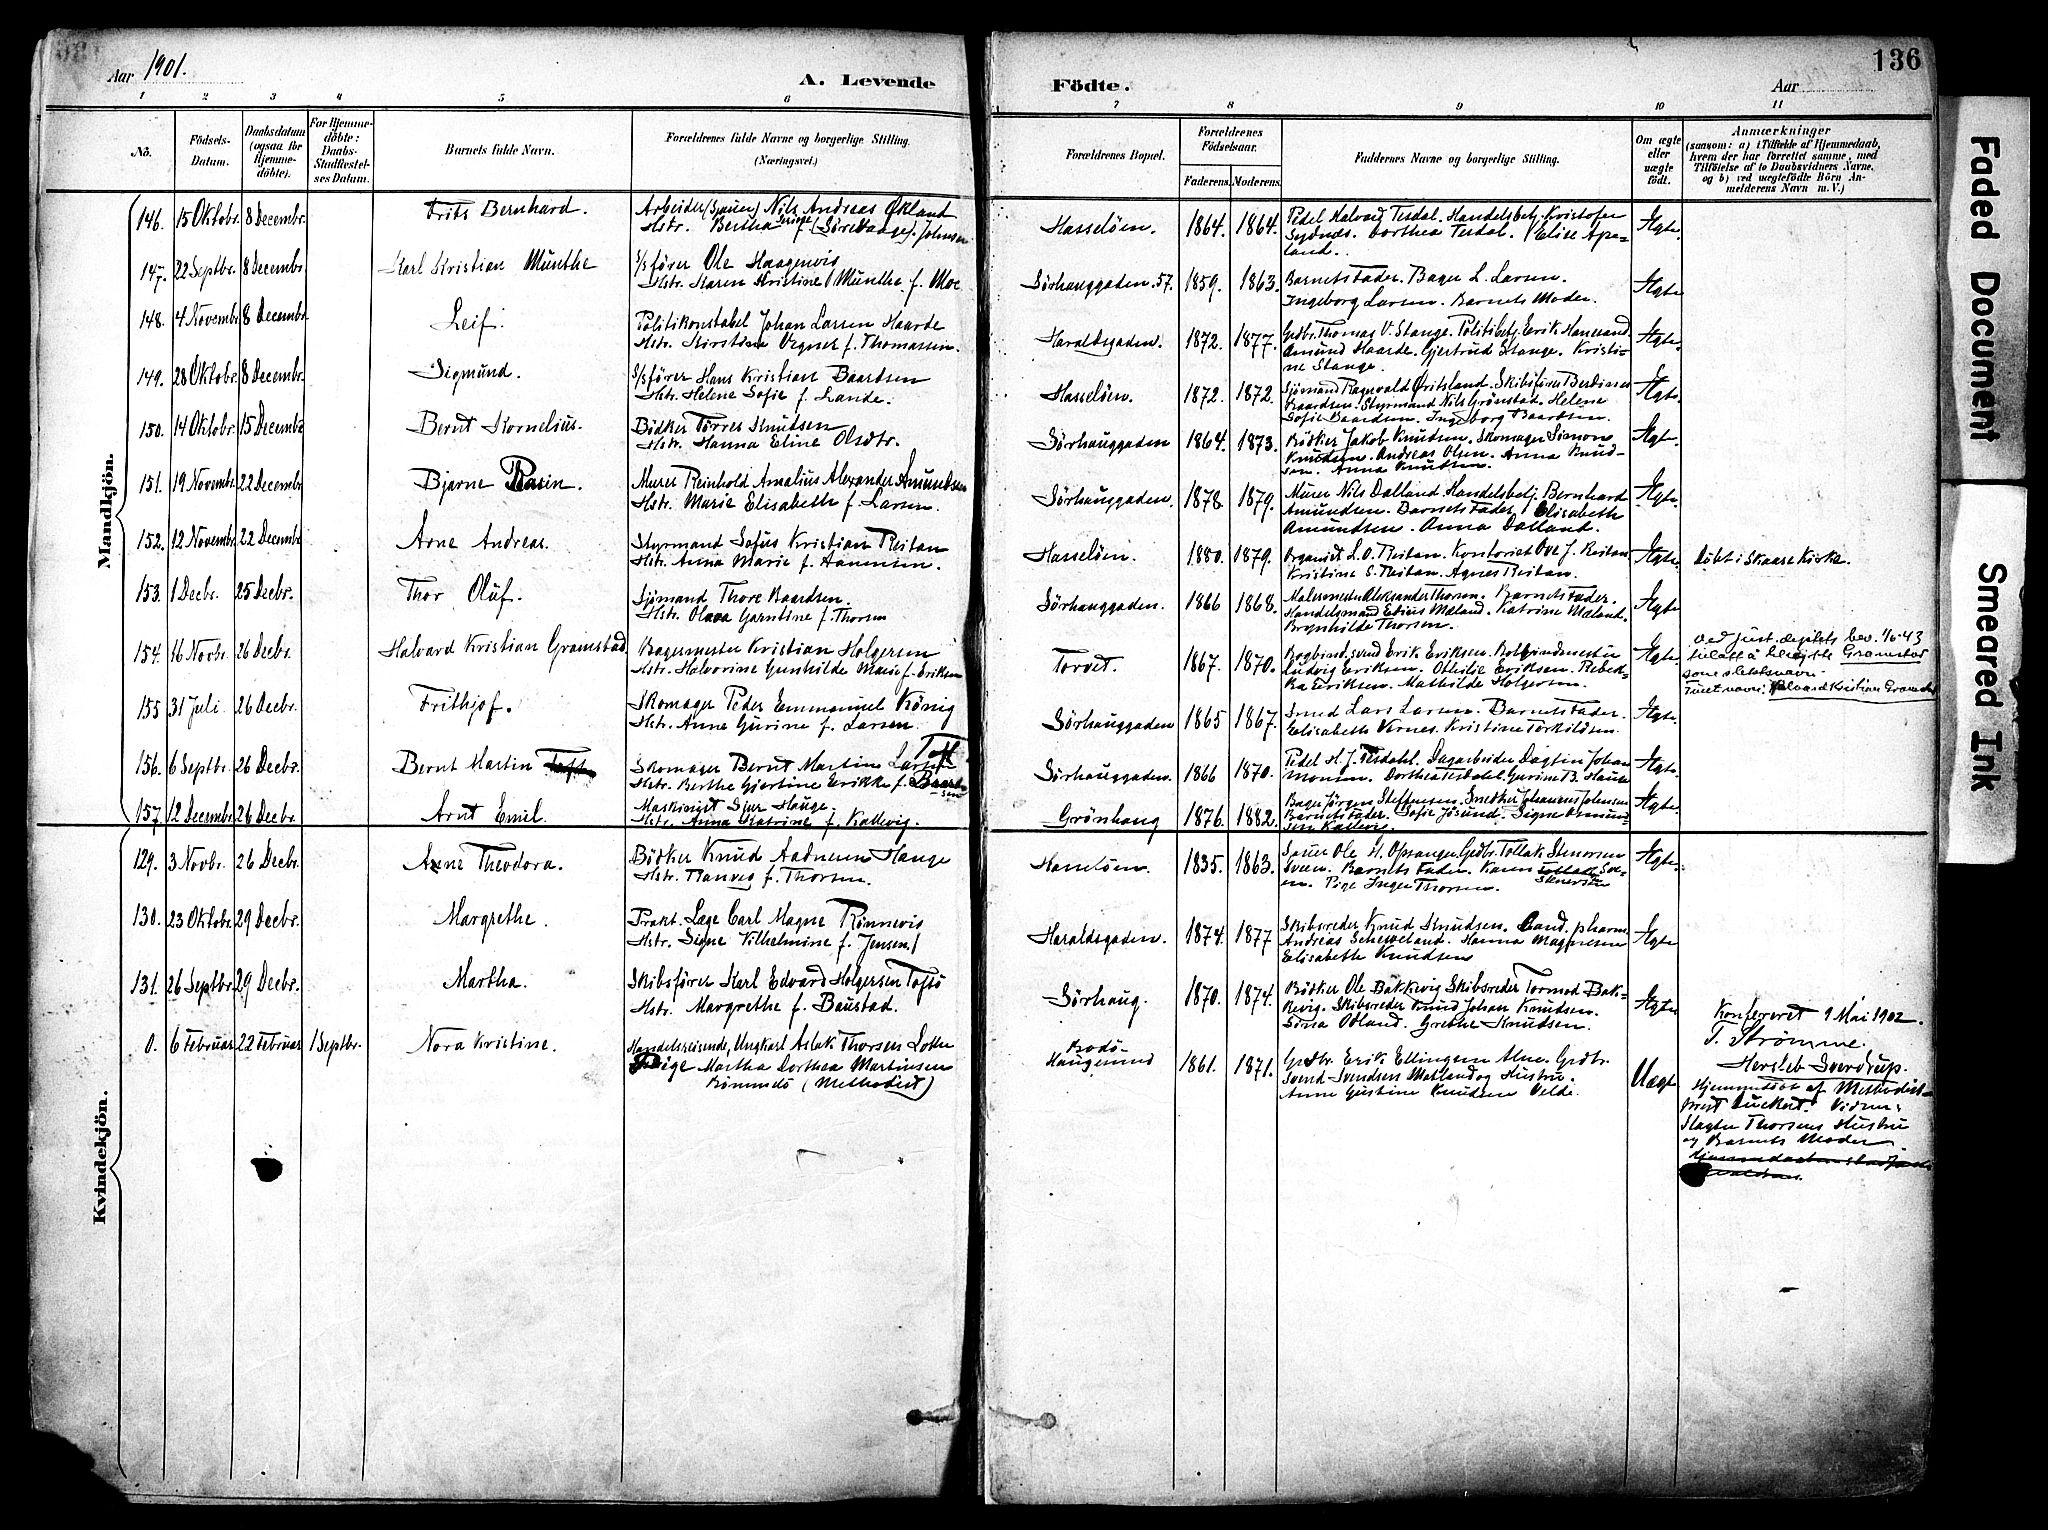 136
Aar 1901.
A. Levende
Födte.
Aar
1 2 3 4 5 6 7 8 9 10 11
No.
Födsels-Datum.
Daabsdatum (ogsaa for Hjemme-döbte).
For Hjemme-döbte: Daabs-Stadfæstel-ses Datum.
Barnets fulde Navn.
Forældrenes fulde Navne og borgerlige Stilling.
(Næringsvei.)
Forældrenes Bopæl.
Forældrenes Födselsaar.
Faderens. Moderens.
Faddernes Navne og borgerlige Stilling.
Om ægte eller uægte födt.
Anmærkninger
(saasom: a) i Tilfælde af Hjemmedaab, hvem der har forrettet samme, med Tilföielse af to Daabsvidners Navne, og b) ved uægtefödte Börn An-melderens Navn m. V.)
Mandkjön.
146. 15 Oktobr. 8 Decembr. Frits Bernhard. Arbeider (Snuer) Nils Andreas Økland
Hstr. Bertha f. (Sørevaage) Johnsen
Hasselöen. 1864. 1864. Pedel Halvard Tesdal. Handelsbetj. Kristofer
Dorthea Tesdal. Elise Apeland. Ægte.
147. 22 Septbr. 8 Decembr. Karl Kristian Munthe S/sfører Ole Haagenvis
Hstr. Karen Kristine Munthe f. Moe
Sørhauggaden 57. 1859. 1863. Barnets Fader. Bager L. Larsen.
Ingeborg Larsen. Barnets Moder. Ægte
148. 4 Novembr. 8 Decembr. Leif. Politikonstabel Johan Larsen Haarde
Hstr. Kirstina Vegner f. Thomassen.
Haraldsgaden. 1872. 1877. Grdbr. Thomas V. Stange. Politibetj. Erik Haneand.
Amund Haarde. Gjertrud Stange. Kristine Stange. Ægte.
149. 28 Oktobr. 8 Decembr. Sigmund. S/sfører Hans Kristian Baardsen
Hstr. Helene Sofie f. Lande.
Hasselöen. 1872. 1872. Sjömand Ragnvald Øritsland. Skibsfører Berdines
Baardsen. Styrmand Nils Grønstad. Helene
Sofie Baardsen. Ingeborg Baardsen. Ægte.
150. 14 Oktobr. 15 Decembr. Bernt Kornelius. Bödker Törres Knudsen
Hstr. Hanna Eline Olsdtr.
Sørhauggaden 1864. 1873. Bödker Jakob Knudsen. Skomager Simon
Knudsen. Andreas Olsen. Anna Knudsen. Anna Knudsen. Ægte.
151. 19 Novembr. 22 Decembr. Bjarne Rasin. Murer Reinhold Amalius Alexander Amundsen
Hstr. Marie Elisabeth f. Larsen.
Sørhauggaden. 1878. 1879. Murer Nils Dalland. Handelsbetj. Bernhard
Amundsen. Barnets Fader. Elisabeth
Amundsen. Anna Dalland. Ægte.
152. 12 Novembr. 22 Decembr. Arne Andreas. Styrmand Sofus Kristian Reitan
Hstr. Anna Marie f. Hansen.
Hasselöen. 1880. 1879. Organist L. O. Reitan. Kontorist Ove J. Reitan
Kristine S. Reitan. Agnes Reitan. Ægte. Döbt i Skaare Kirke.
153. 1 Decbr. 25 Decbr. Thor Oluf. Sjömand Thore Baardsen.
Hstr. Olava Garntine f. Thorsen
Sørhauggaden. 1866 1868. Malermester Aleksander Thorsen. Barnets Fader.
Handelsmand Edias Mæland. Katrine Mæland.
Brynhilde Thorsen. Ægte
154. 16 Novbr. 26 Decbr. Halvard Kristian Gramstad. Bagermester Kristian Holgersen
Hstr. Halvorine Gunhilde Marie f. Eriksen
Torvet. 1867. 1870. Bogbind.svend Erik Eriksen. Bogbindmester
Ludvig Eriksen. Othilie Eriksen. Rebekka Eriksen. Mathilde Holgersen. Ægte.
Ved just. deptets bev. 1/6-43
tillatt å benytte Gramstad
som slektsnavn.
Halvard Kristian Gramstad
155 31 Juli 26 Decbr. Frithjof. Skomager Peder Emmanuel König
Hstr. Anne Gurine f. Larsen.
Sørhauggaden 1865 1867. Smed Lars Larsen. Barnets Fader.
Elisabeth Vernes. Kristine Torkildsen. Ægte.
156. 6 Septbr. 26 Decbr. Bernt Martin Toft Skomager Bernt Martin Larsen Toft
Hstr. Berthe Gjertine Erikke f. Baardsen
Sørhauggaden. 1866 1870. Pedel H. J. Tesdahl. Dagarbeider Dagfin Johan
Monsen. Dorthea Tesdahl. Gurine B. Hauge Ægte.
157. 12 Decembr. 26 Decbr. Arnt Emil. Maskinist Sjur Hauge.
Hstr. Anna Katrine f. Kallevig.
Grönhaug 1876. 1882. Bager Jörgen Steffensen. Snedker Johannes Johnsen
Barnets Fader. Sofie Jösund. Signe Osmundsen Kallevig. Ægte.
Kvindekjön.
129. 3 Novbr. 26 Decbr. Arne Theodora. Bödker Knud Aadnesen Hauge
Hstr. Ranveg f. Thorsen.
Hasselöen. 1835. 1863. Snuer Ole H. Opsanger. Grdbr. Tollak Stenersen
Sveen. Barnets Fader. Karen Stenersen Sveen. Pige Inger Thorsen. Ægte.
130. 23 Oktobr. 29 Decbr. Margrethe. Prakt. Læge Carl Magne Rönnevig
Hstr. Signe Vilhelmine f. Jensen
Haraldsgaden. 1874. 1877 Skibsreder Knud Knudsen. Cand. pharm.
Andreas Scheveland. Hanna Magnesen
Elisabeth Knudsen Ægte
131. 26 Septbr. 29 Decbr. Martha. Skibsfører Karl Edvard Holgersen Toftö
Hstr. Margrethe f. Baustad.
Sørhaug. 1870. 1874. Bödker Ole Bakkevig. Skibsreder Tormod Bakkevig. Skibsreder Knud Johan Knudsen.
Sina Odland. Grethe Knudsen. Ægte
Konfereret 9 Mai 1902.
T. Strömme.
Hersleb Sverdrup.
0. 6 Februar 22 Februar 1 Septbr. Nora Kristine. Handelsreisende, Ungkarl Aslak Thorsen Lothe
Pige Martha Dorthea Martinsen
(Methodist)
Bodö-
Haugesund 1861. 1871. Grdbr. Erik Ellingsen Alne. Grdbr.
Svend Svendsen Matland og Hustru.
Anne Gurine Knudsen Velde. Uægte
Hjemmedöbt af Methodist-
prest Duckert. Vidner:
Slagter Thorsens Hustru
og Barnets Moder
Faded Document
Smeared Ink